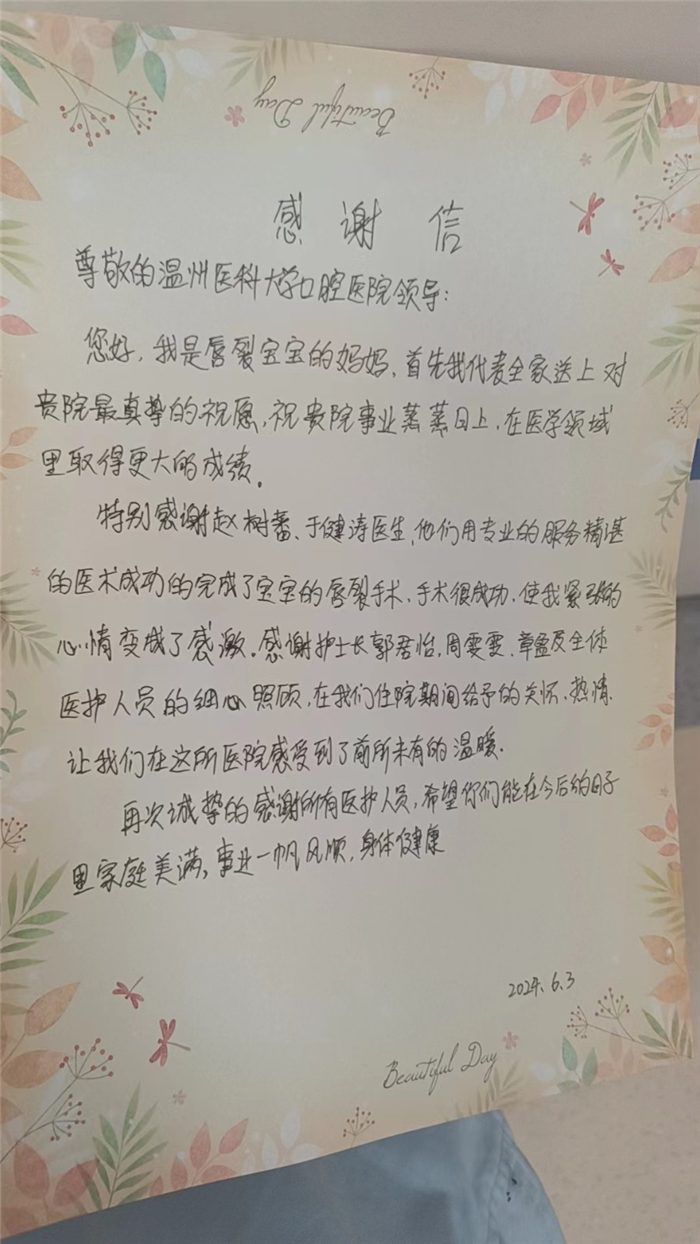 Beautiful Day
感谢信
尊敬的温州医科大学口腔医院领导:
您好,我是唇裂宝宝的妈妈、首先我代表全家送上对
贵院最真挚的祝愿,祝贵院事业蒸蒸日上,在医学领域
里取得更大的成绩。
特别感谢赵树蕃、于健涛医生,他们用专业的服务精湛
的医术成功的完成了宝宝的唇裂手术、手术很成功,使我紧张的
心情变成了感激。感谢护士长郭君怡,周雯雯、章孟及全体
医护人员的细心照顾,在我们住院期间给予的关怀、热情、
让我们在这所医院感受到了前所未有的温暖、
再次诚挚的感谢所有医护人员,希望你们能在今后的日子
里家庭美满,事业一帆风顺,身体健康
2024.6.3
Beautiful Day